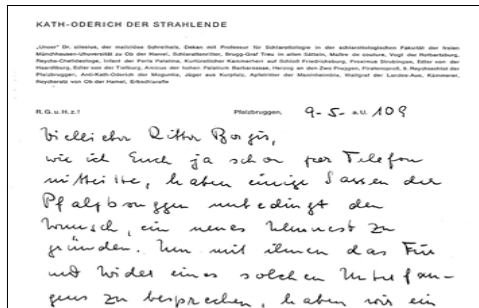 KATH-ODERICH DER STRAHLENDE
„Unser“ Dr. silesius, der maliziöse Schreihals, Dekan mit Professur für Schlaraffiologie in der schlaraffologischen Fakultät der freien
Münchhausen-Uhuversität zu Ob der Hamel, Schlaraffenritter, Brugg-Graf Treu in allen Sätteln, Maître de couture, Vogt der
Reychs-Chefideologe, Infant der Perla Palatina, Kurfürstlicher Kammerherr auf Schloß Friedrichsburg, Proximus Strubingae, Edler von der
Haardtburg, Edler von der Amicus der hohen Palatium Barbarossae, Herzog an den Zwo Pruggen, Fürstenspross, Reychsschlaf der
Pfalzbruggen, Anti-Kath-Oderich der Moguntia, Jäger aus Kurpfalz, Apfelritter der Mannheimbia, Wallgraf der Landes-Aux, Kämmerer,
Reycherats von Ob der Hamel, Erbschlaraffe
R.G.u.H.z.! Pfalzbruggen, 9-5- a.U. 109
Viellieber Ritter Borgis,
wie ich Euch ja schon per Telefon
mitteilte, haben einige Sassen der
Pfalzbruggen unbedingt den
Wunsch, ein neues Uhunest zu
gründen. Um mit ihnen das Für
und Wider eines solchen Unterfan-
gens zu besprechen, haben wir ein